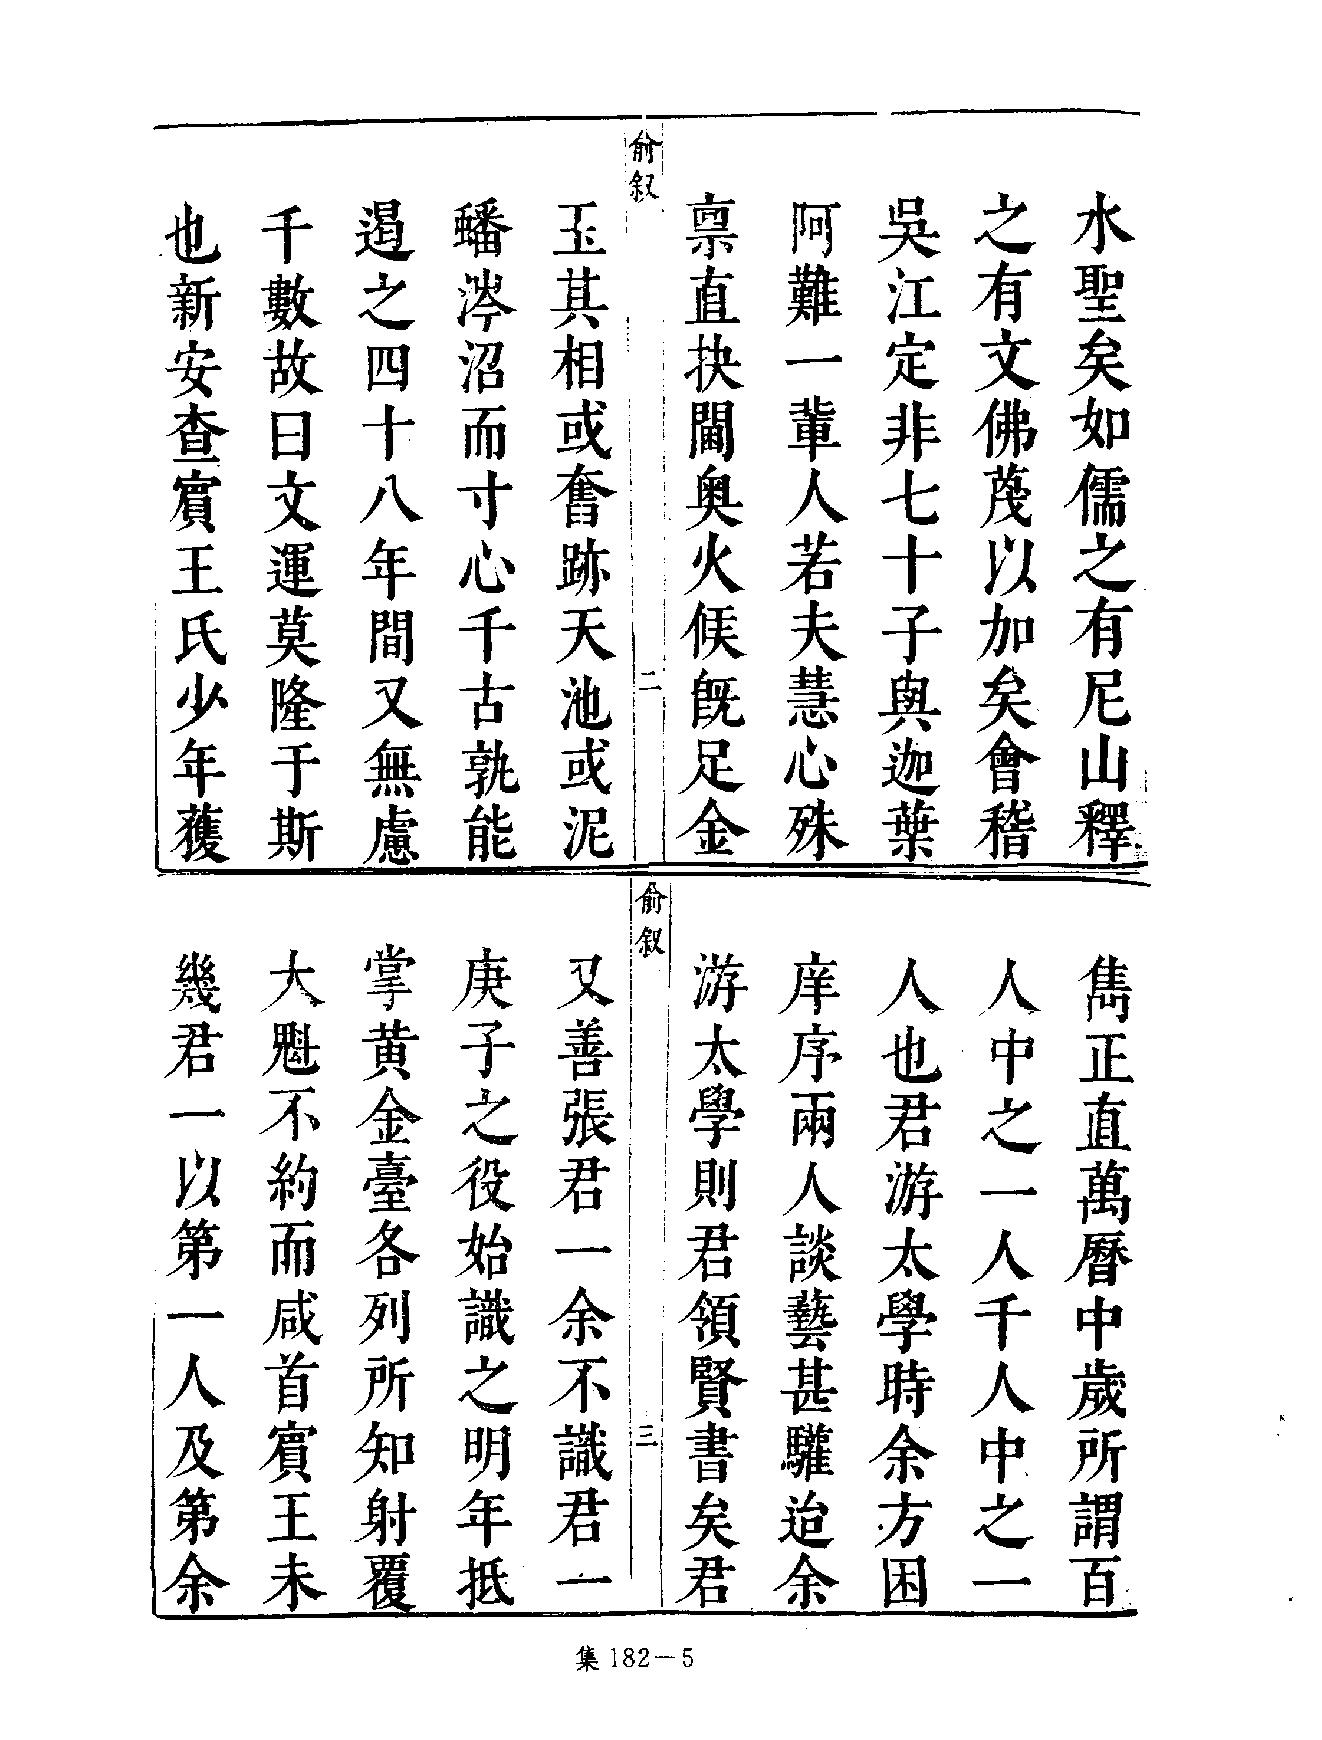 水聖矣如儒之有尼山釋
之有文佛蔑以加矣會稽
吳江定非七十子與迦葉
阿難一輩人若夫慧心殊
禀直抉閫奥火候旣足金
俞叙
二
玉其相或奮跡天池或泥
蟠涔沼而寸心千古孰能
遏之四十八年間又無慮
千數故曰文運莫隆于斯
也新安查賔王氏少年獲
雋正直萬曆中歲所謂百
人中之一人千人中之一
人也君游太學時余方困
庠序兩人談藝甚驩迨余
游太學則君領賢書矣君
俞叙
三
又善張君一余不識君一
庚子之役始識之明年抵
掌黄金臺各列所知射覆
大魁不約而咸首賔王未
幾君一以第一人及第余
集182－5